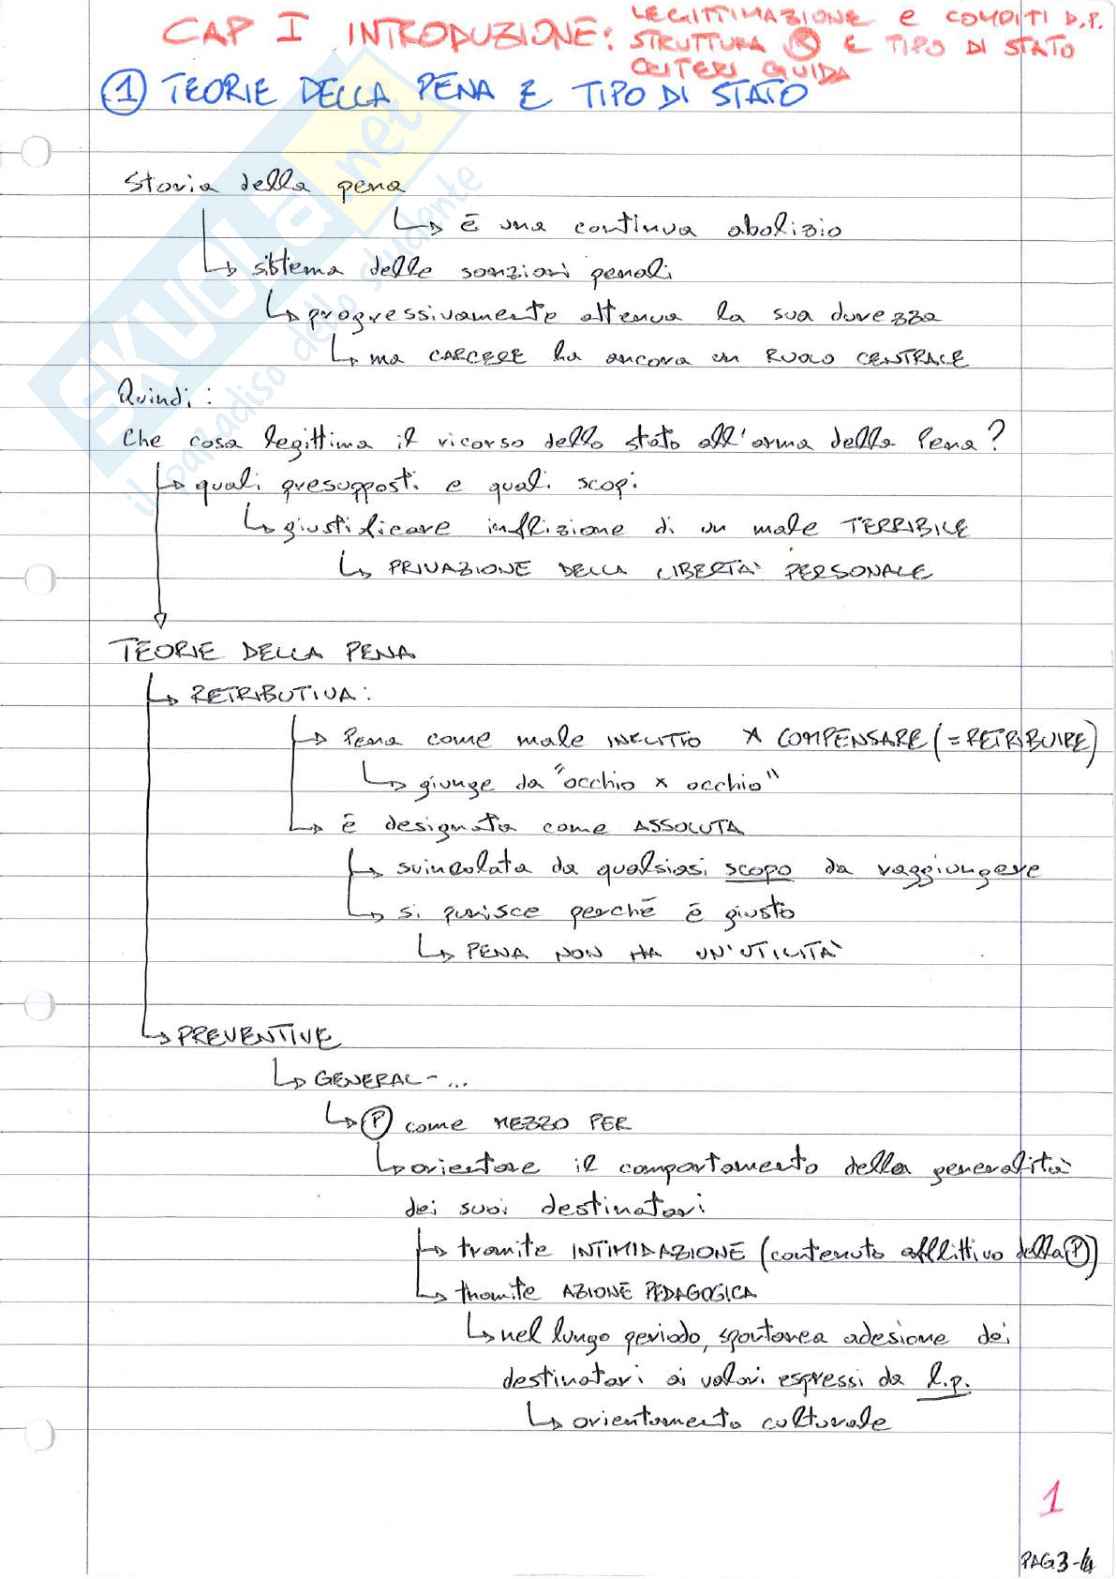 CAP I INTRODUZIONE: LEGITTIMAZIONE e COMPITI D.P.
STRUTTURA Ⓡ E TIPO DI STATO
CRITERI GUIDA
① TEORIE DELLA PENA E TIPO DI STATO
Storia della pena
↳ è una continua abolizio
↳ sistema delle sanzioni penali
↳ progressivamente attenua la sua durezza
↳ ma CARCERE ha ancora un RUOLO CENTRALE
Quindi:
Che cosa legittima il ricorso dello stato all'arma della Pena?
↳ quali presupposti e quali scopi
↳ giustificare inflizione di un male TERRIBILE
↳ PRIVAZIONE DELLA LIBERTA' PERSONALE
TEORIE DELLA PENA
↳ RETRIBUTIVA:
↳ Pena come male INFLITTO x COMPENSARE (=RETRIBUIRE)
↳ giunge da "occhio x occhio"
↳ è designata come ASSOLUTA
↳ svincolata da qualsiasi scopo da raggiungere
↳ si punisce perché è giusto
↳ PENA NON HA UN'UTILITÀ
↳ PREVENTIVE
↳ GENERAL-...
↳ Ⓟ come MEZZO PER
↳ orientare il comportamento della generalità
dei suoi destinatari
↳ tramite INTIMIDAZIONE (contenuto afflittivo della Ⓟ)
↳ tramite AZIONE PEDAGOGICA
↳ nel lungo periodo, spontanea adesione dei
destinatari ai valori espressi da l.p.
↳ orientamento culturale
1
PAG 3-4
SKUOLA.net
il paradiso dello studente